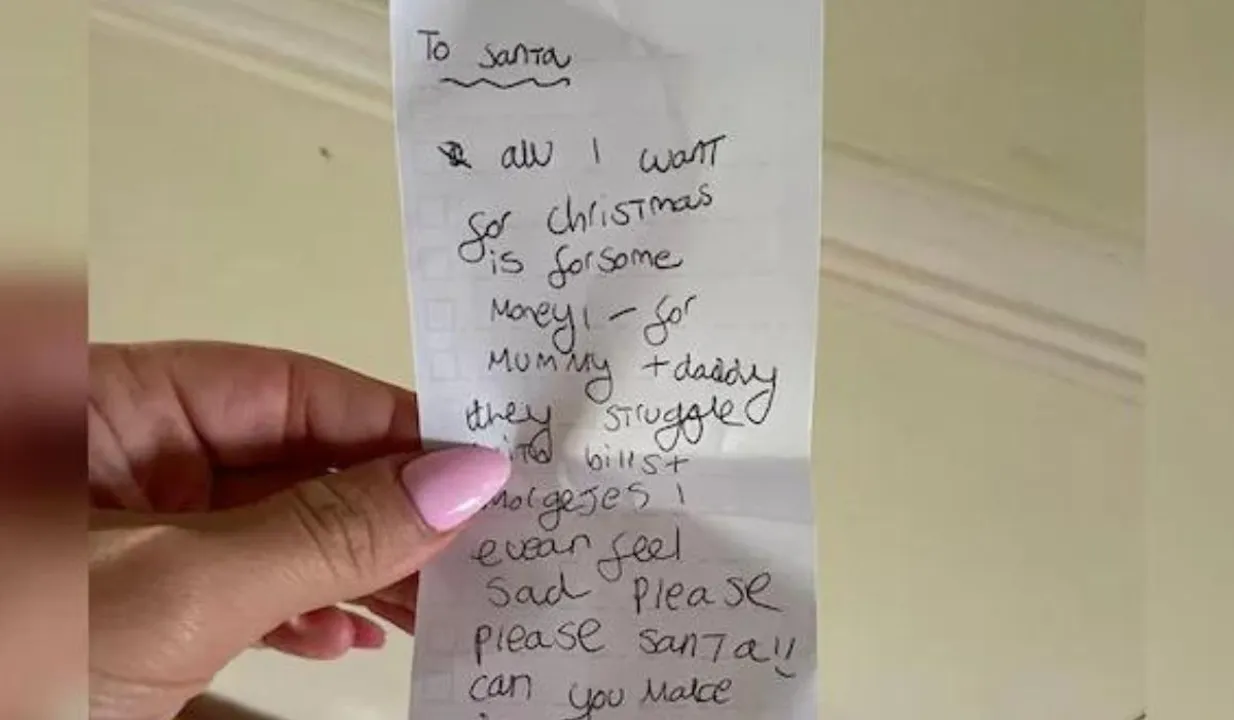 To Santa
all I want
for christmas
is forsome
Money! - for
MUMMY + daddy
they struggle
bills +
morgejes I
evean feel
sad Please
please santa!!
can you Make